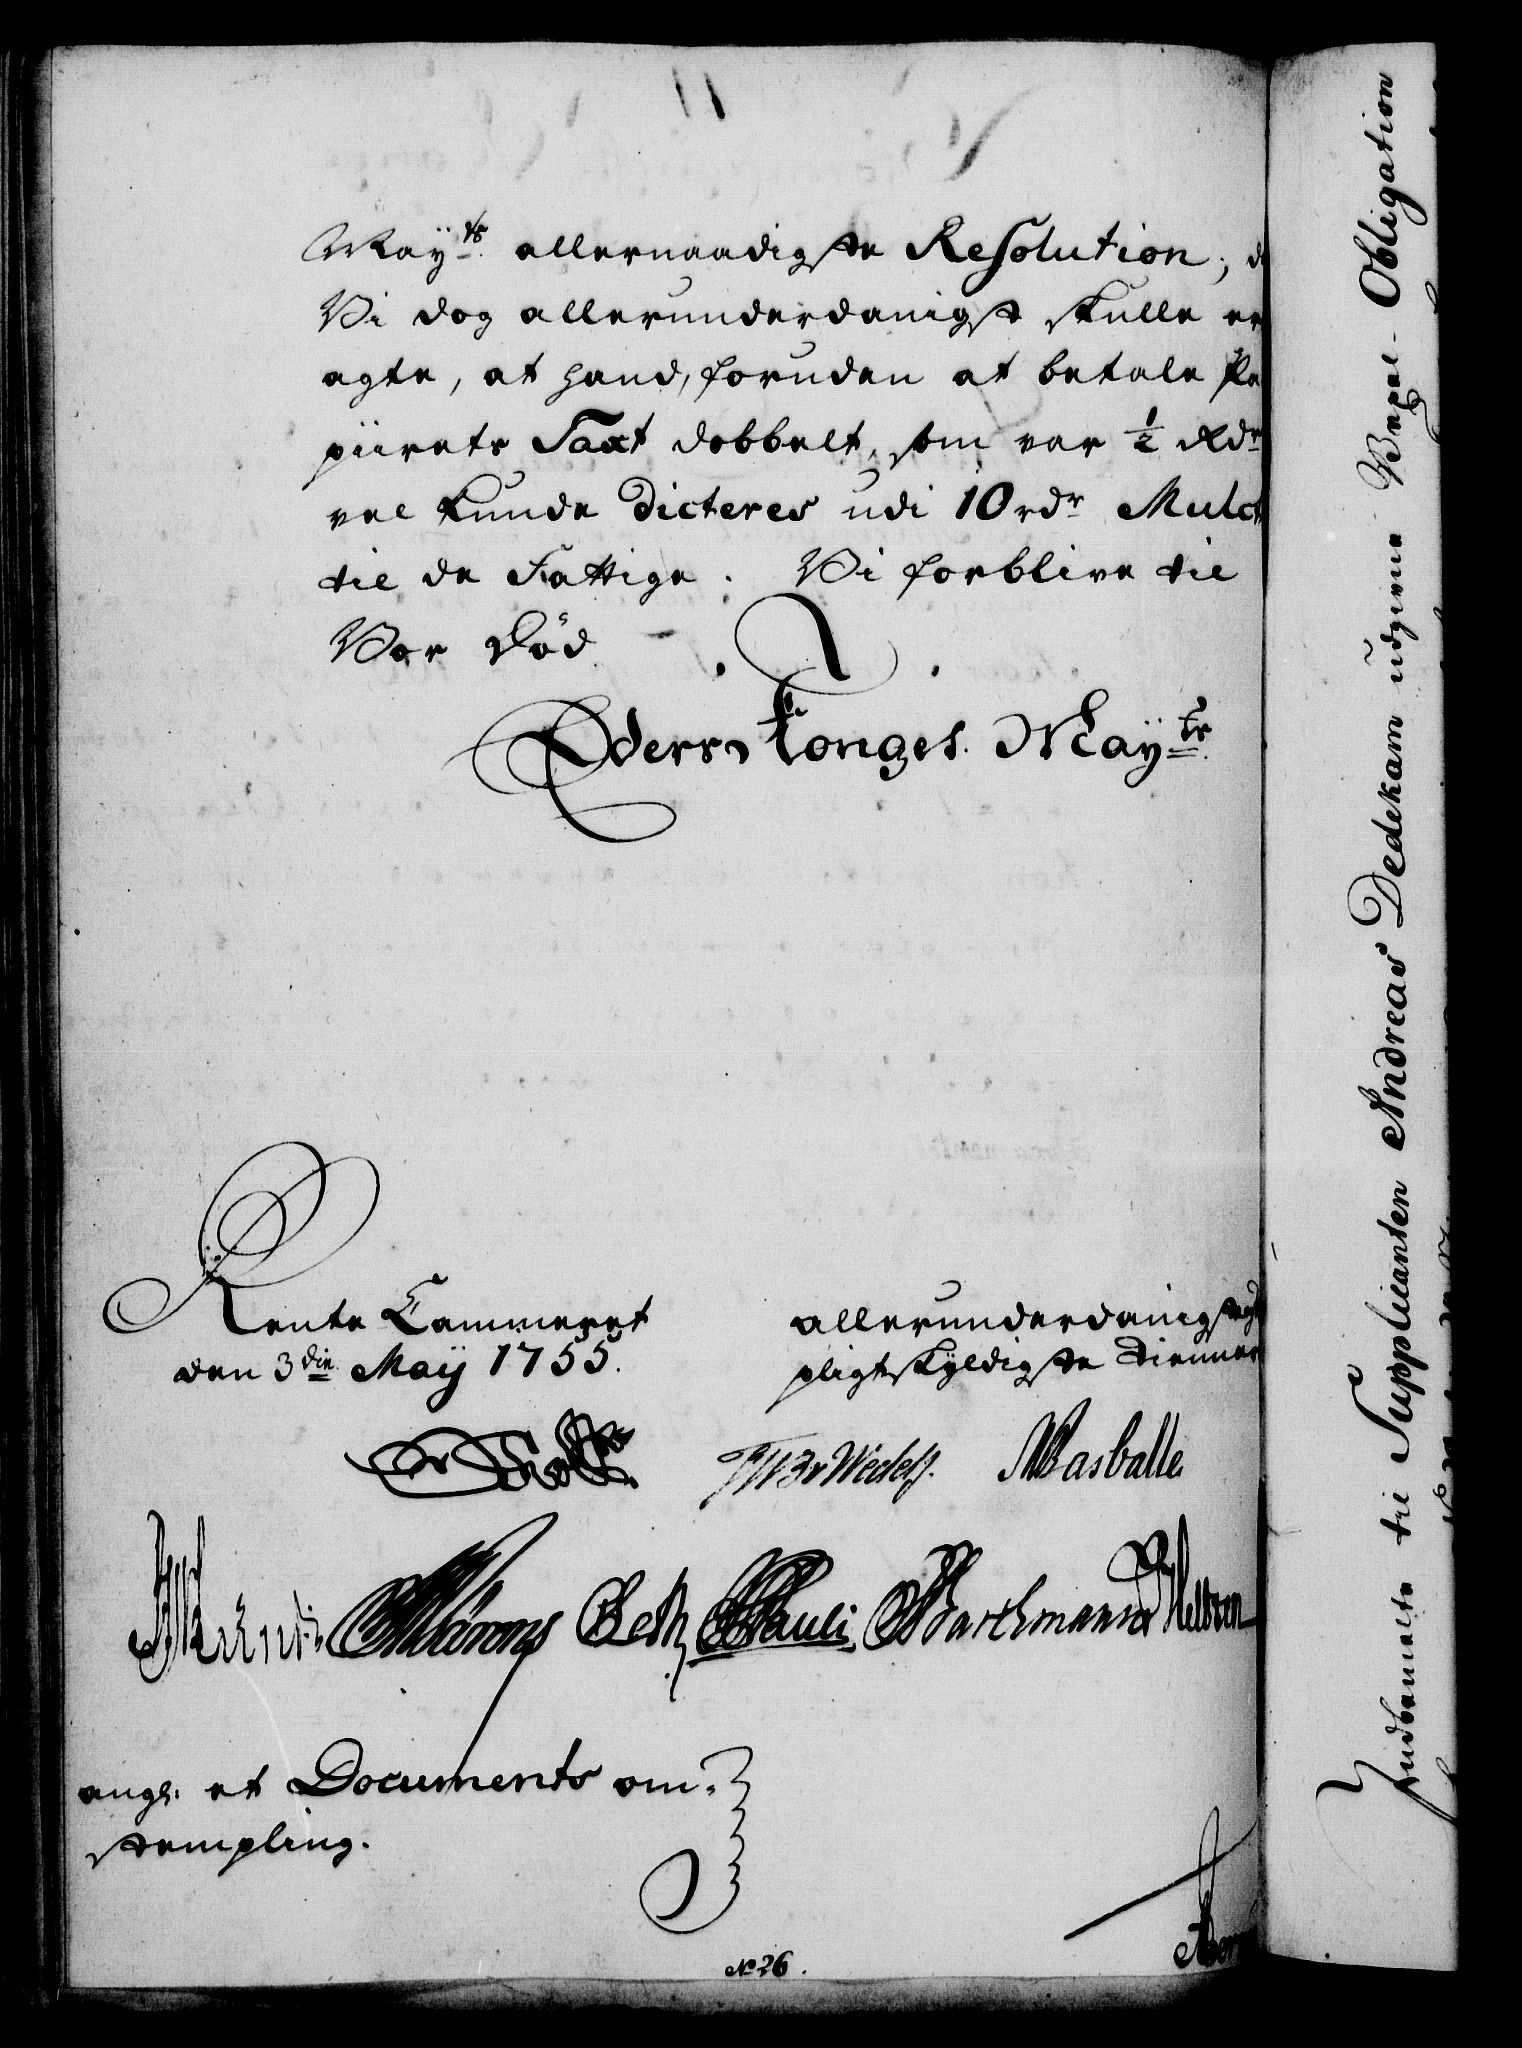 Mayts allernaadigste Resolution,
Vi dog allerunderdanigst skulle er
agte, at hand, foruden at betale Pa
piirets Taxt dobbelt, som var ½ Rdr
vel kunde dicteres udi 10 rdr Mulct
til de Fattige. Vi forblive til
Vor Død
Eders Konges Mayts
Rente Cammeret
den 3die Maÿ 1755.
allerunderdanigste
pligtskyldigste Tienner
v Wedel Wasballe
Pauli Barthmann
angl: et Documents om-
stempling.
No 26.
Indbemelte til Supplicanten Andreas Dedekam udgivne Vexel-Obligation